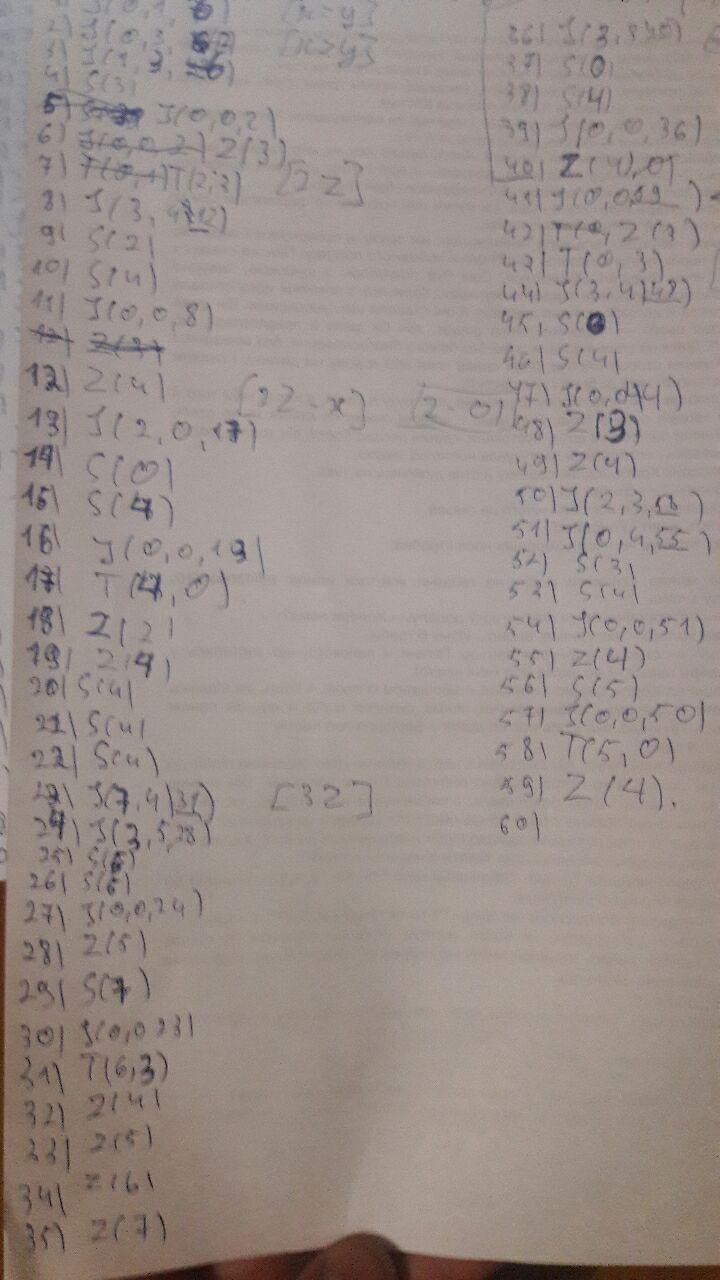 [x=y]
2) J(0,3,
[x>y]
4) S(3)
5) J(0,0,2)
6) Z(3)
7) T(2,3) [2z]
8) J(3,4,12)
9) S(2)
10) S(4)
11) J(0,0,8)
12) Z(4)
[2z-x] (2-0)
13) J(2,0,17)
14) S(0)
15) S(4)
16) J(0,0,13)
17) T(4,0)
18) Z(2)
19) Z(4)
20) S(4)
21) S(4)
22) S(4)
23) J(7,4,31) [3z]
24) J(3,5,28)
25) S(5)
26) S(6)
27) J(0,0,24)
28) Z(5)
29) S(7)
30) J(0,0,23)
31) T(6,3)
32) Z(4)
33) Z(5)
34) Z(6)
35) Z(7)
36) J(3,
37) S(0)
38) S(4)
39) J(0,0,36)
40) Z(4)
41) J(0,0,
42) Z(3)
43) T(0,3)
44) J(3,4,48)
45) S(0)
46) S(4)
47) J(0,0,44)
48) Z(3)
49) Z(4)
50) J(2,3,
51) J(0,4,55)
52) S(3)
53) S(4)
54) J(0,0,51)
55) Z(4)
56) S(5)
57) J(0,0,50)
58) T(5,0)
59) Z(4).
60)